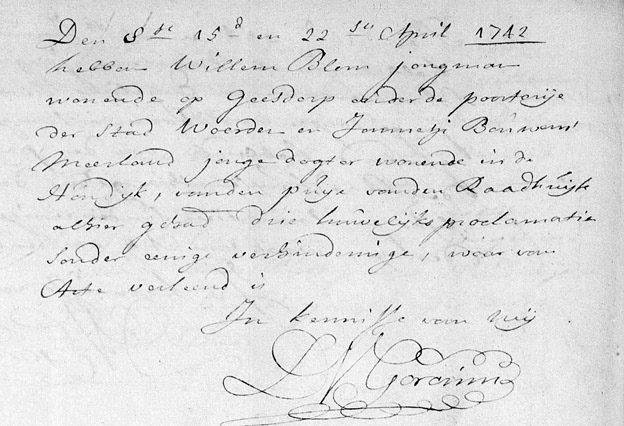 Den 8ste 15d en 22ste April 1742
hebben Willem Blom jongman
wonende op Geesdorp onder de poorterije
der Stad Woerden en Jannetje Bouwens
Meerland jonge dogter wonende in de
, vanden puije vanden Raadhuijse
alhier gehad drie huwelijks proclamatie
sonder eenige verhinderinge, waar van
Acte verleend is
In kennisse van mij